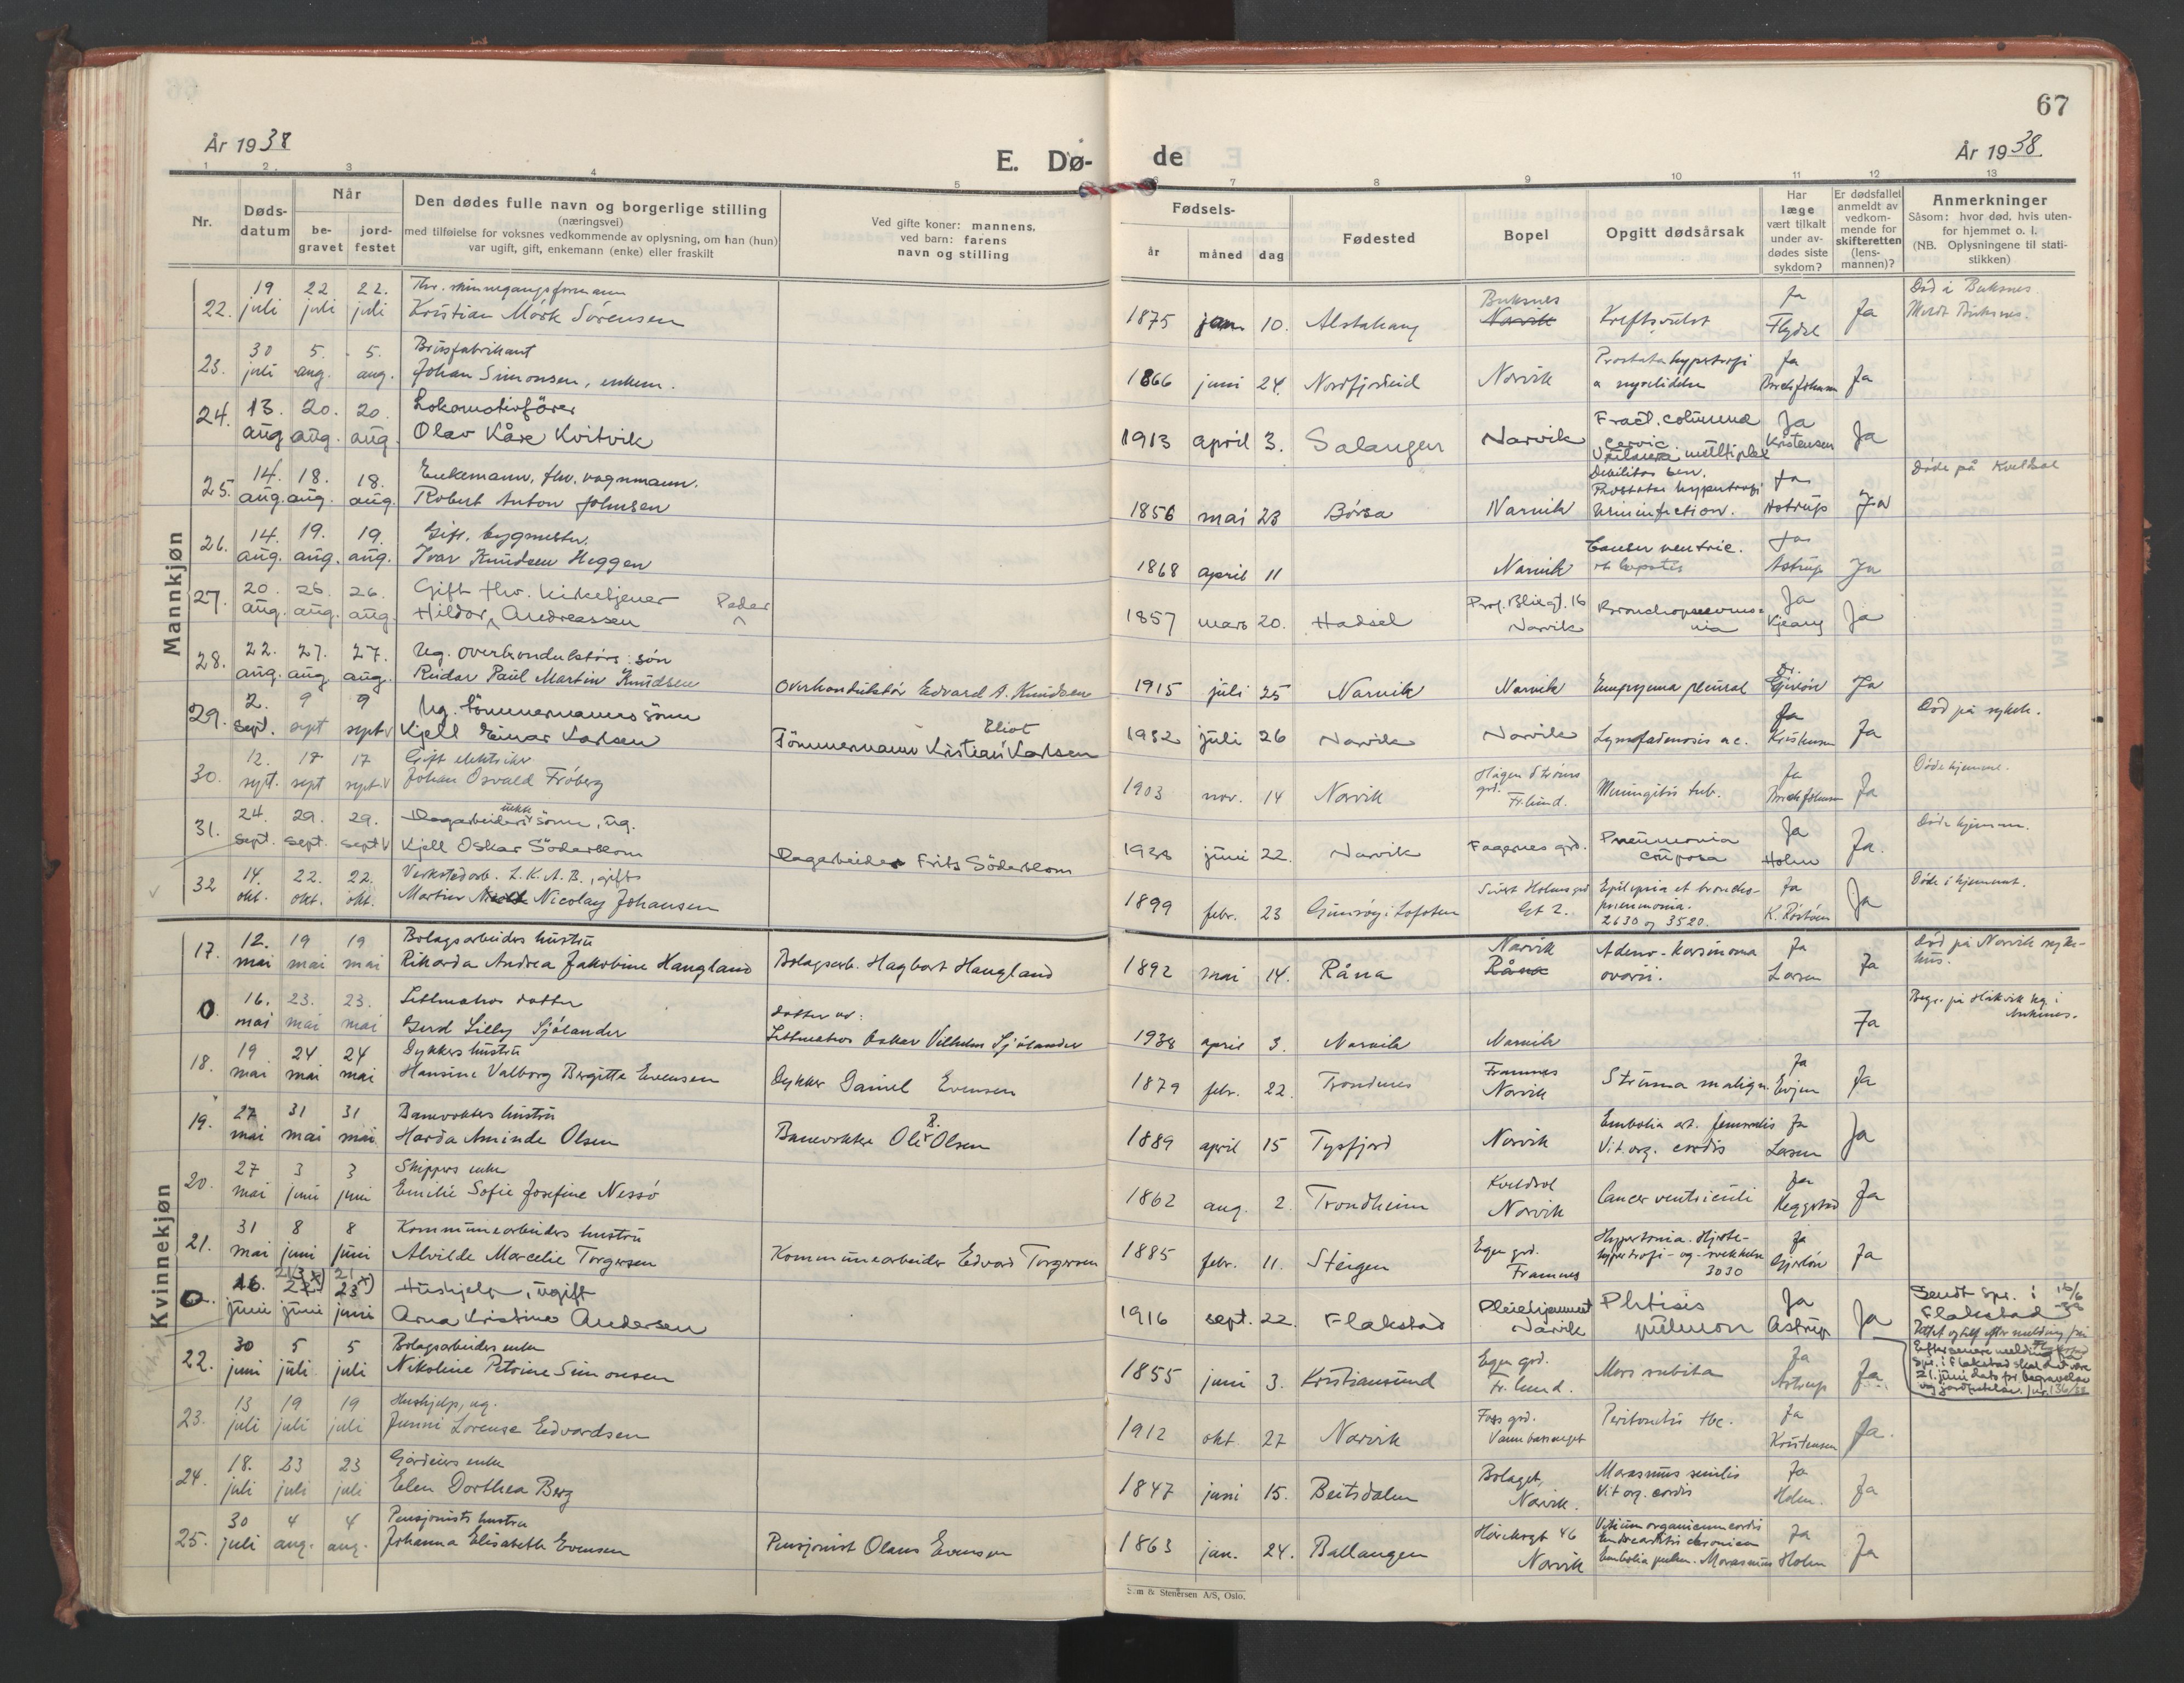 67
År 1938
E. Dø-
de
År 1938.
1 2. 3 4 5 6 7 8 9 10 11 12 13
Nr.
Døds-
datum
Når
be-
gravet
jord-
festet
Den dødes fulle navn og borgerlige stilling
(næringsvei)
med tilføielse for voksnes vedkommende av oplysning, om han (hun)
var ugift, gift, enkemann (enke) eller fraskilt
Ved gifte koner: mannens,
ved barn: farens
navn og stilling
Fødsels-
år måned dag
Fødested
Bopel
Opgitt dødsårsak
Har
læge
vært tilkalt
under av-
dødes siste
sykdom?
Er dødsfallet
anmeldt av
vedkom-
mende for
skifteretten
(lens-
mannen)?
Anmerkninger
Såsom: hvor død, hvis uten-
for hjemmet o. l.
(NB. Oplysningene til stati-
stikken)
Mannkjøn
19 22 22. Fhv. skinnegangsformann Buksnes Ja Død i Buksnes
22. juli juli juli Kristian Mörk Sörensen 1875 jan 10. Alstahaug Narvik Kreftsvulst Flydal Ja Meldt Buksnes.
30 5. 5. Brusfabrikant Prostatahypertrofi Ja
23. juli aug. aug. Johan Simonsen, enkem. 1866 juni 24. Nordfjordeid Narvik a nyrelidelse Ja
13. 20. 20. Lokomotivförer Fract. columna Ja
24. aug aug. aug. Olav Kåre Kvitvik 1913 april 3. Salangen Narvik cervic. Kristensen Ja
multiplex
14. 18. 18. Enkemann, fhv. vognmann. Debilitas sen. Ja Döde på Kveldsol
25. aug. aug. aug. Robert Anton Johnsen 1856 mai 23 Börsa Narvik Prostata hypertrofi Astrup Ja
Urininfection.
14. 19. 19. Gift, bygmester. Cancer ventric. Ja
26. aug. aug. aug. Ivar Knudsen Heggen 1868 april 11 Narvik et hepatis Astrup Ja
20. 26. 26. Gift fhv. kirketjener Peder Prof. Bliegt. 16 Bronchopneumo- Ja
27. aug. aug. aug. Hildor Andreassen 1857 mars 20. Hadsel Narvik nia Ja
22. 27. 27. Ug. overkonduktörs sön Dr.
28. aug. aug aug. Reidar Paul Martin Knudsen Overkonduktör Edvard A. Knudsen 1915 juli 25 Narvik Narvik Empyema pleural Ja
2. 9 9 Ug. Tömmermanns sönn Eliot Ja Död på sykeh.
29. sept. sept sept Kjell Einar Karlsen Tömmermann Kristian Karlsen 1932 juli 26 Narvik Narvik Lymfadenosis ac. Kristensen Ja
12. 17 17 Gift elektriker Hagen Ströms Ja Döde hjemme.
30. sept. sept sept Johan Osvald Fröberg 1903 nov. 14 Narvik grd. Fr.lund. Meningitis tub. Ja
24. 29. 29. Dagarbeiders sönn, ug. Pneumonia Ja Döde hjemme.
31. sept. sept. sept Kjell Oskar Söderblom Dagarbeider Frits Söderblom 1938 juni 22. Narvik Fagernes grd. cruposa Holm Ja.
14. 22. 22. Verkstedarb. L.K.A.B., gift Sivert Holms grd Epilepsia et broncho- Ja Döde i hjemmet.
32 okt. okt. okt. Martin Nicolay Johansen 1899 febr. 23 Gimsöy i Lofoten Gt 2. pneumonia. Ja
2630 og 3520.
Kvinnekjøn
12. 19 19 Bolagsarbeiders hustru Narvik Adeno-karsinoma Ja Död på Narvik syke-
17. mai mai mai Rikarda Andrea Jakobine Haugland Bolagsarb. Hagbart Haugland 1892 mai 14. Råna Råna ovarii. Larsen Ja hus.
16. 23. 23. Lettmatros datter datter av: Begr. på Håkvik kg. i
0. mai mai mai Gerd Lilly Sjölander Lettmatros Oskar Vilhelm Sjölander 1938 april 3. Narvik Narvik Ja Ankenes.
19 24 24 Dykkers hustru Framnes Ja
18. mai mai mai Hansine Valborg Bergitte Evensen Dykker Daniel Evensen 1879 febr. 22. Trondenes Narvik Struma malign. Evjen Ja
27 31 31 Banevokters hustru B. Embolia art. femoralis Ja
19. mai mai mai Harda Aminde Olsen Banevokter Ole Olsen 1889 april 15 Tysfjord Narvik Vit. org. cordis Larsen Ja
27 3 3 Skippers enke Kveldsol Ja
20. mai juni juni Emilie Sofie Josefine Nessö 1862 aug. 2. Trondheim Narvik Cancer ventriculi Heggstad Ja
31 8 8 Kommunearbeiders hustru Egen grd. Hypertonia. Hjerte- Ja
21. mai juni juni Alvilde Marcelie Torgersen Kommunearbeider Edvard Torgersen 1885 febr. 11. Steigen Framnes hypertrofi- og -svekkelse Ja
3030
16. 21 x) 21 x) Hushjelp, ugift Pleiehjemmet Phtisis Ja Sendt spr. i 16/6
0. juni juni 23 juni Arna Kristine Andersen 1916 sept. 22. Flakstad Narvik pulmon Astrup Ja Flakstad 38
30 5 5 Bolagsarbeiders enke Egen grd. Ja Efter senere melding fra
22. juni juli juli Nikoline Petrine Simonsen 1855 juni 3. Kristiansund Fr. lund. Mors subita Astrup Ja. spr. i Flakstad skal det være
21. juni dato for begravelse
og jordfestelse. jnr. 136/38
13 19 19 Hushjelp, ug. Foss grd. Ja
23. juli juli juli Jenni Lorense Edvardsen 1912 okt. 27 Narvik Vannbassenget Peritonitis tbc. Kristensen Ja.
18. 23 23 Gårdeiers enke Bolaget, Marasmus senilis Ja
24. juli juli juli Elen Dorthea Berg 1847 juni 15. Beitsdalen Narvik. Vit org. cordis Holm. Ja
30 4 4 Pensjonists hustru Vitium organicum cordis Ja
25. juli aug. aug. Johanna Elisabeth Evensen Pensjonist Olaus Evensen 1863 jan. 24. Ballangen 46 Narvik Endocarditis chronica Holm Ja
Embolia pulm. Marasmus
Sem & Stenersen A/S, Oslo.